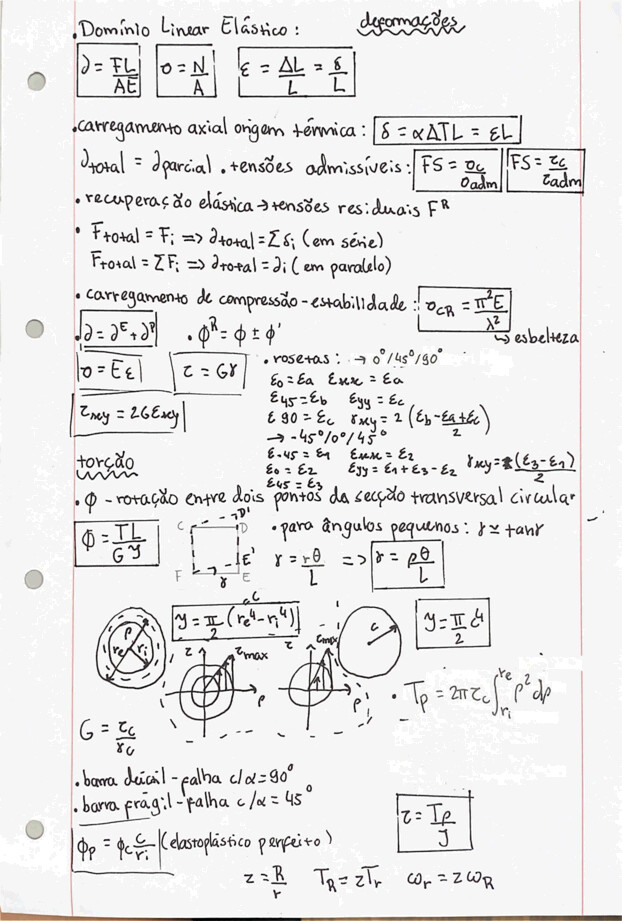 deformações
• Domínio Linear Elástico:
∂ = FL/AE   σ = N/A   ε = ΔL/L = δ/L
• carregamento axial origem térmica: δ = αΔTL = εL
∂total = ∂parcial • tensões admissíveis: FS = σc/σadm   FS = τc/τadm
• recuperação elástica → tensões residuais Fᴿ
• Ftotal = Fi => ∂total = Σδi (em série)
Ftotal = ΣFi => ∂total = ∂i (em paralelo)
• carregamento de compressão - estabilidade: σCR = π²E/λ²
↳ esbelteza
• ∂ = ∂ᴱ + ∂ᴾ   • ϕᴿ = ϕ ± ϕ'
σ = Eε   τ = Gγ   • rosetas: → 0°/45°/90°
ε0 = εa   εxx = εa
ε45 = εb   εyy = εc
τxy = 2Gεxy   ε90 = εc   γxy = 2(εb - (εa+εc)/2)
→ -45°/0°/45°
ε-45 = ε1   εxx = ε2
ε0 = ε2   εyy = ε1 + ε3 - ε2   γxy = (ε3 - ε1)/2
ε45 = ε3
torção
• ϕ - rotação entre dois pontos da secção transversal circular
ϕ = TL/GJ   C   D'   D   • para ângulos pequenos: γ ≃ tanγ
F   γ   E'   E   γ = rθ/L => γ = ρθ/L
J = π/2 (re⁴ - ri⁴)   J = π/2 c⁴
ρ   re   ri   τ   τmax   ρ   τ   τmax   ρ   c
• Tp = 2πτc ∫ri^re ρ² dρ
G = τc/γc
• barra dúctil - falha c/α = 90°
• barra frágil - falha c/α = 45°
τ = Tρ/J
ϕp = ϕc c/ri (elastoplástico perfeito)
z = R/r   TR = zTr   ωr = zωR